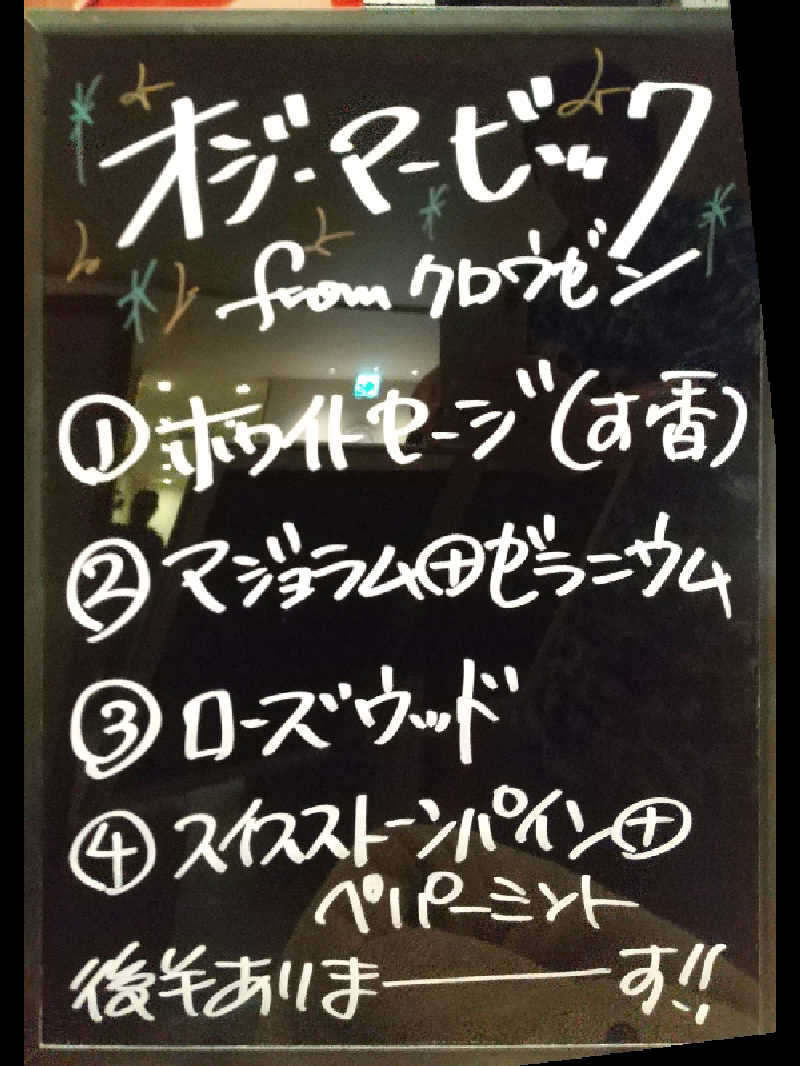 オジーマービック
from クロウゼン
①ホワイトセージ(す香)
②マジョラム⊕ゼラニウム
③ローズウッド
④スイスストーンパイン⊕
ペパーミント
後半ありまーす!!